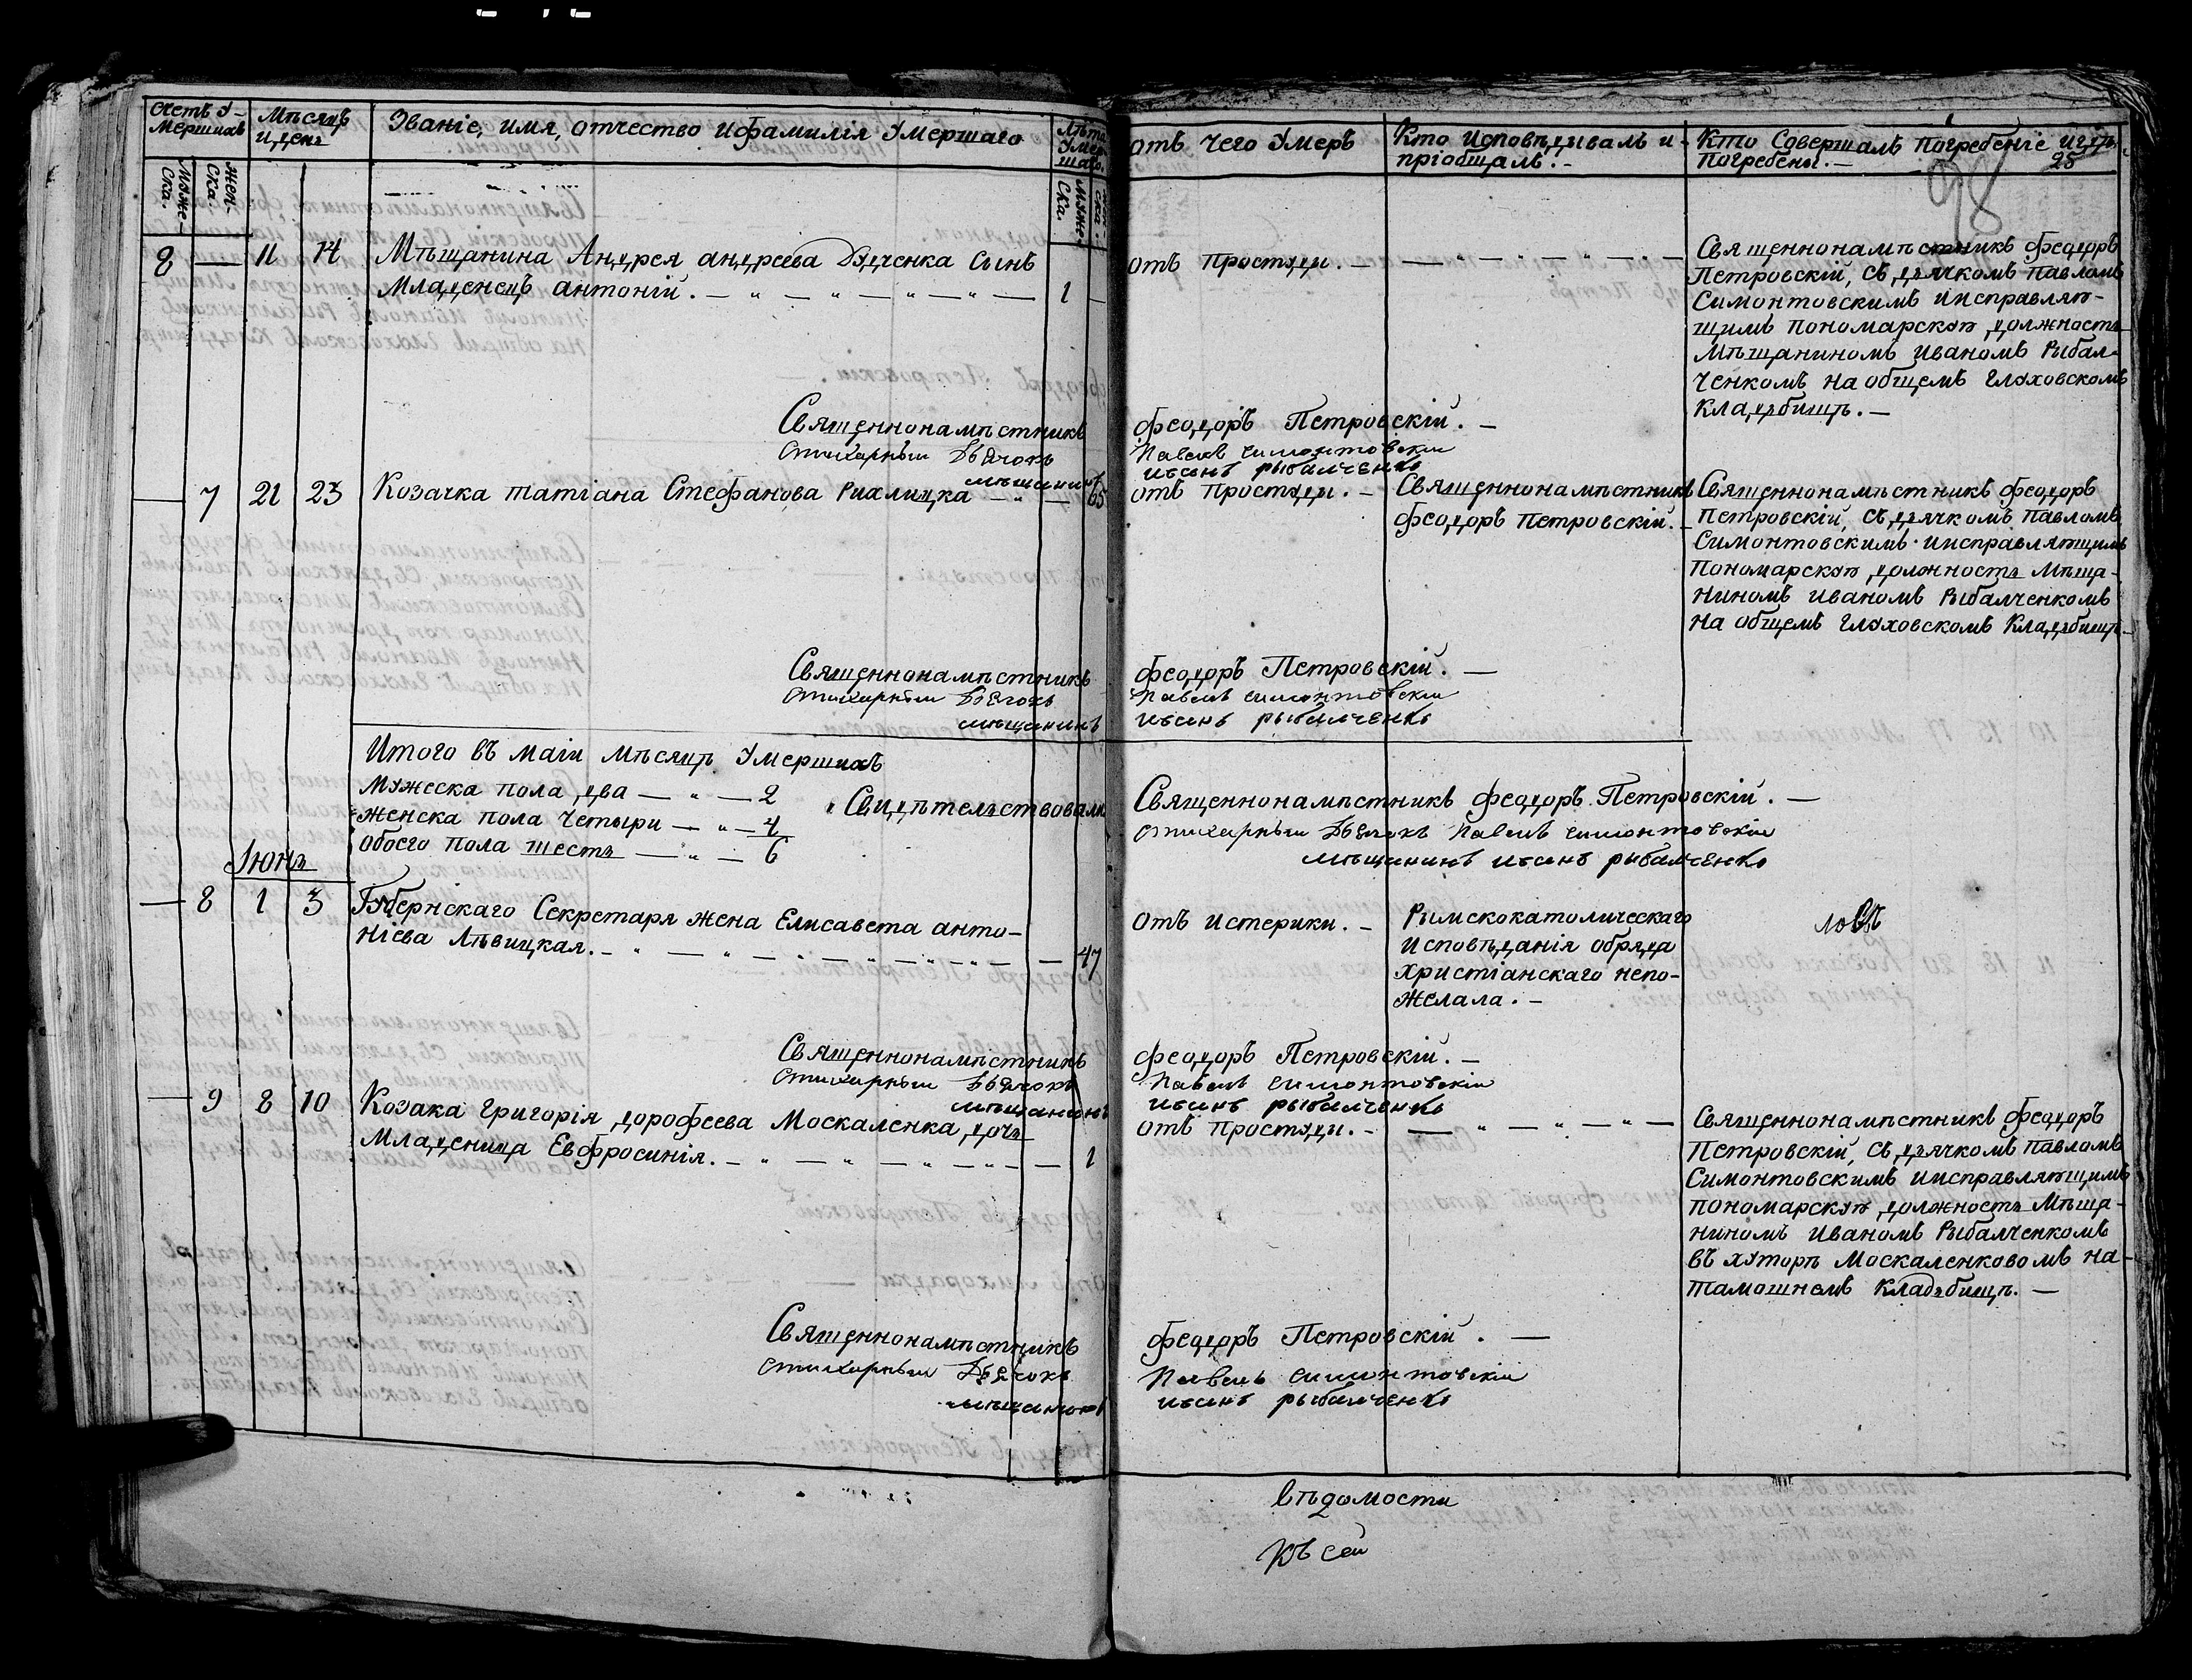 Счетъ у-
мершихъ
Мужe-
ска.
Жен-
ска.
Мѣсяцъ
и день
Званіе, имя, отчество ифамилія умершаго
Лѣта
умер-
шаго.
Муже-
ска.
отъ чего умеръ
Кто исповѣдывалъ и
пріобщалъ.-
Кто совершалъ погребеніе игдѣ
погребены.-
25
98
8 — 11 14 Мѣщанина Андрея андреева Дядченка сынъ
младенецъ антоній. — 1 —
отъ простуди. —
Священнонамѣстникъ феодоръ
Петровскій, съ дьячкомъ павломъ
Симонтовскимъ иисправляю-
щимъ пономарскую должность
мѣщаниномъ иваномъ Рыбал-
ченкомъ на общемъ глуховскомъ
кладьбищѣ. —
Священнонамѣстникъ феодоръ Петровскій. —
стихарный дьячокъ павелъ симонтовскій
мѣщанинъ иванъ рыбалченко
— 7 21 23 Козачка татіана Стефанова Рихлицка — 65
отъ простуди. —
Священнонамѣстникъ
феодоръ петровскій. —
Священнонамѣстникъ феодоръ
петровскій, съ дьячкомъ павломъ
Симонтовскимъ иисправляющимъ
пономарскую должность мѣща-
ниномъ иваномъ Рыбалченкомъ
на общемъ глуховскомъ кладьбищѣ. —
Священнонамѣстникъ феодоръ Петровскій. —
стихарный дьячокъ павелъ симонтовскій
мѣщанинъ иванъ рыбалченко
Итого въ маіи мѣсяцѣ умершихъ
мужеска пола два — 2
женска пола четыри — 4
обоего пола шесть — 6
Свидѣтельствовали
Священнонамѣстникъ феодоръ Петровскій. —
стихарный дьячокъ павелъ симонтовскій
мѣщанинъ иванъ рыбалченко
Іюнь
— 8 1 3 Губернскаго Секретаря жена Елисавета анто-
ніева Лѣвицкая. — 47
отъ истерики. —
Римскокатолическаго
исповѣданія обряда
христіанскаго непо-
желала. —
Священнонамѣстникъ феодоръ Петровскій. —
стихарный дьячокъ павелъ симонтовскій
мѣщанинъ иванъ рыбалченко
— 9 8 10 Козака григорія дорофеева Москаленка дочь
младеница Евфросинія. — 1
отъ простуди. —
Священнонамѣстникъ феодоръ
Петровскій, съ дьячкомъ павломъ
Симонтовскимъ иисправляющимъ
пономарскую должность мѣща-
ниномъ иваномъ Рыбалченкомъ
въ хуторѣ Москаленковомъ на
тамошнемъ кладьбищѣ. —
Священнонамѣстникъ феодоръ Петровскій. —
стихарный дьячокъ павелъ симонтовскій
мѣщанинъ иванъ рыбалченко
вѣдомости
къ сей